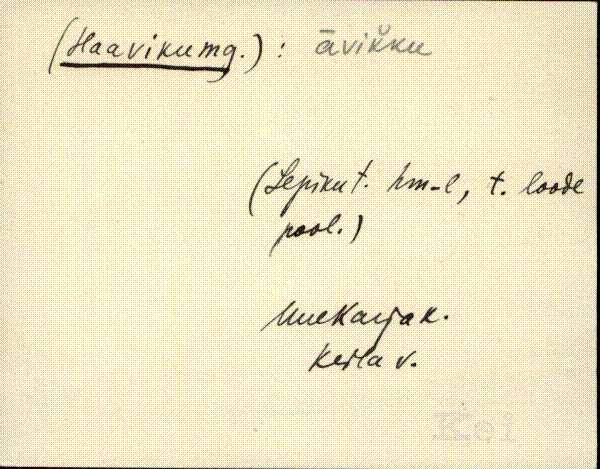 (Haavikumg.) : āvik̆ku
(Lepiku t. hm-l, t. loode
pool.)
Uuekarja k.
Keila v.
Kei